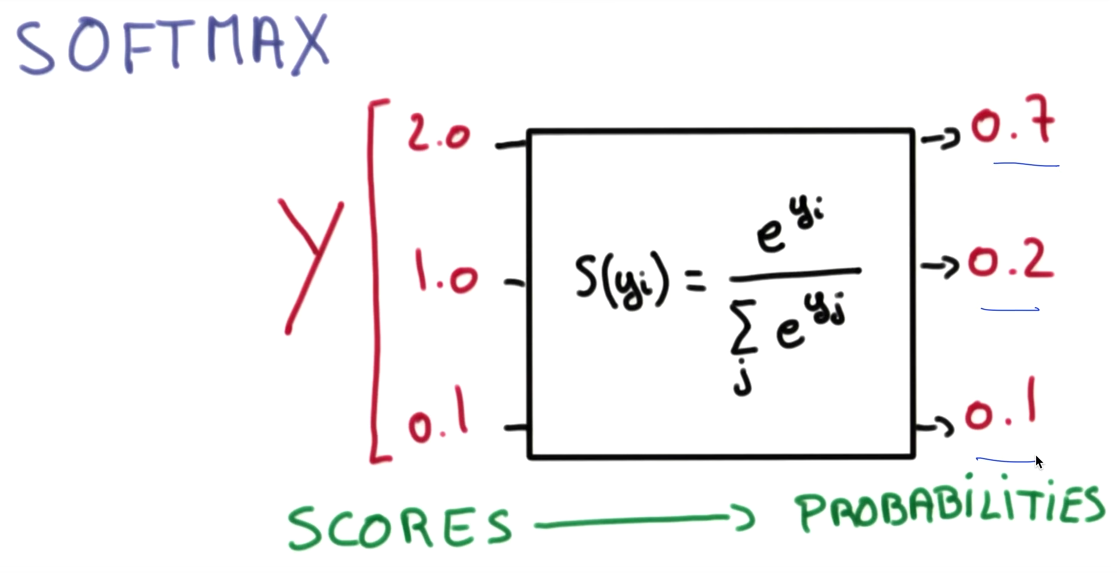 SOFTMAX
Y
2.0
1.0
0.1
S(yi) = e^yi / Σj e^yj
0.7
0.2
0.1
SCORES → PROBABILITIES